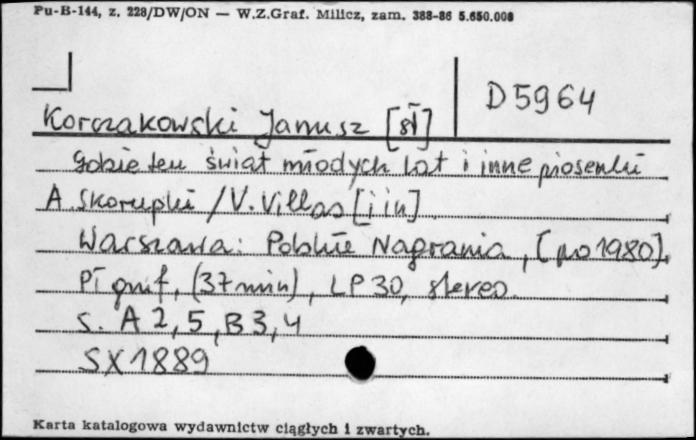 Pu-B-144, z. 228/DW/ON — W.Z.Graf. Milicz, zam. 388-86 5.650.000
D 5964
Korczakowski Janusz [sł]
Gdzie ten świat młodych lat i inne piosenki
A. Skorupki / V. Villas [i in]
Warszawa: Polskie Nagrania, [po 1980].
Pł gnif, (37 min), LP 30, stereo.
S. A 2, 5, B 3, 4
SX 1889
Karta katalogowa wydawnictw ciągłych i zwartych.